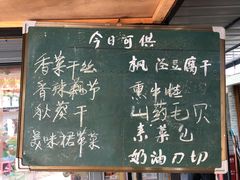 今日可供
香菜干丝
香辣藕节
秋葵干
美味裙带菜
枫泾豆腐干
熏牛蛙
山药毛贝
素菜包
奶油刀切